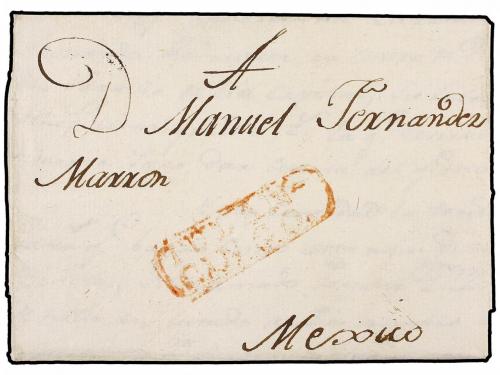 A
D Manuel Fernandez
Marron
Mexico